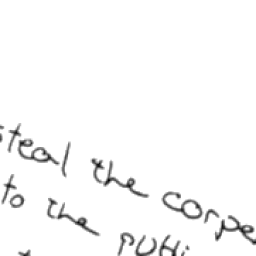 steal the corpe
to the publi